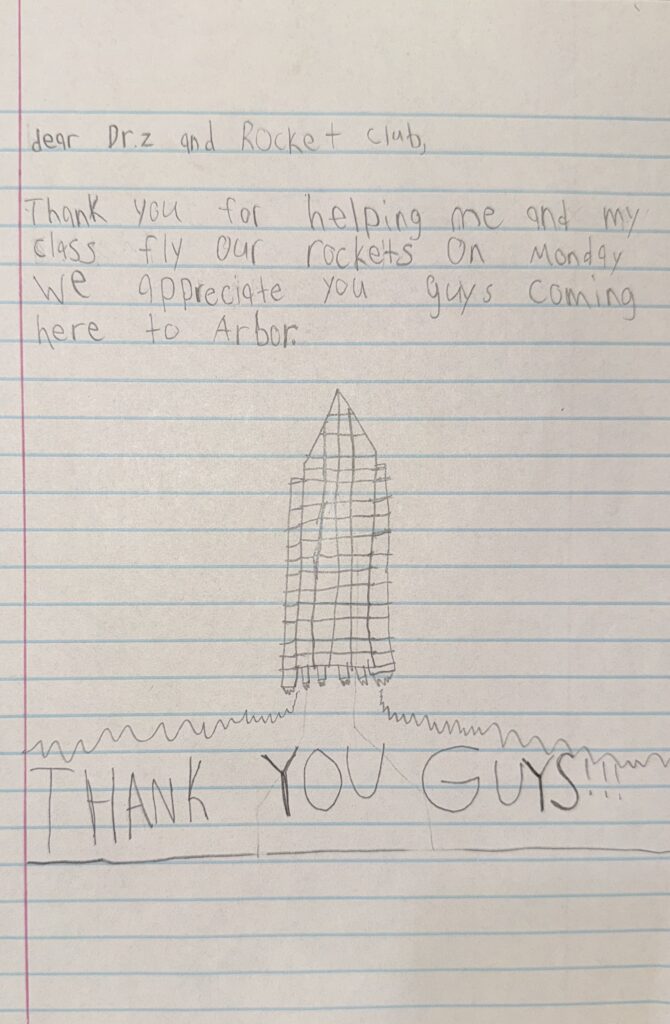 dear Dr.z and Rocket club,
Thank you for helping me and my
class fly our rockets on Monday
We appreciate you guys coming
here to Arbor.
THANK YOU GUYS!!!